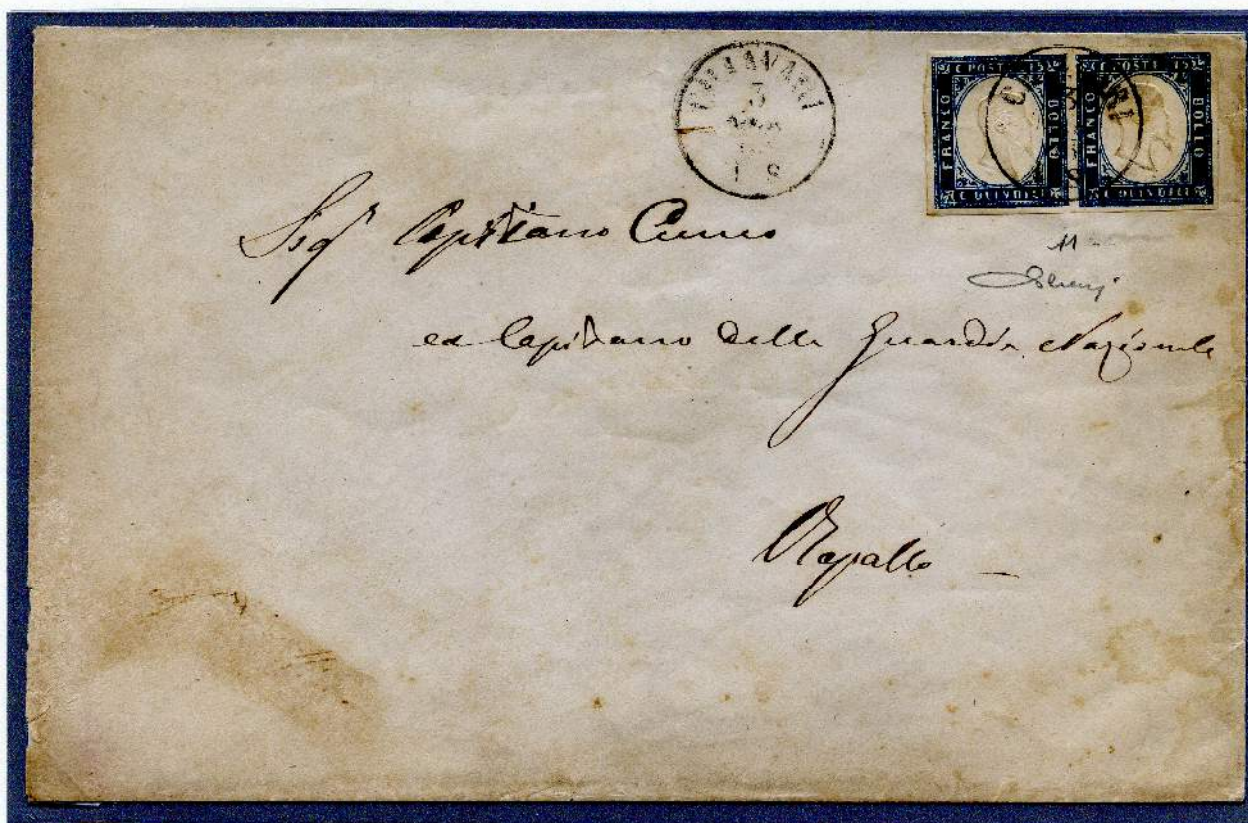 CHIAVARI
3
C. POSTE 15
FRANCO BOLLO
C. QUINDICI
C. POSTE 15
FRANCO BOLLO
C. QUINDICI
Sigr Capitano Cuneo
ex Capitano della Guardia Nazionale
Rapallo
11